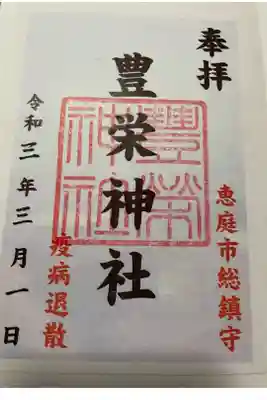 奉拝
恵庭市総鎮守
豊栄神社
豊榮神社
疫病退散
令和三年三月一日